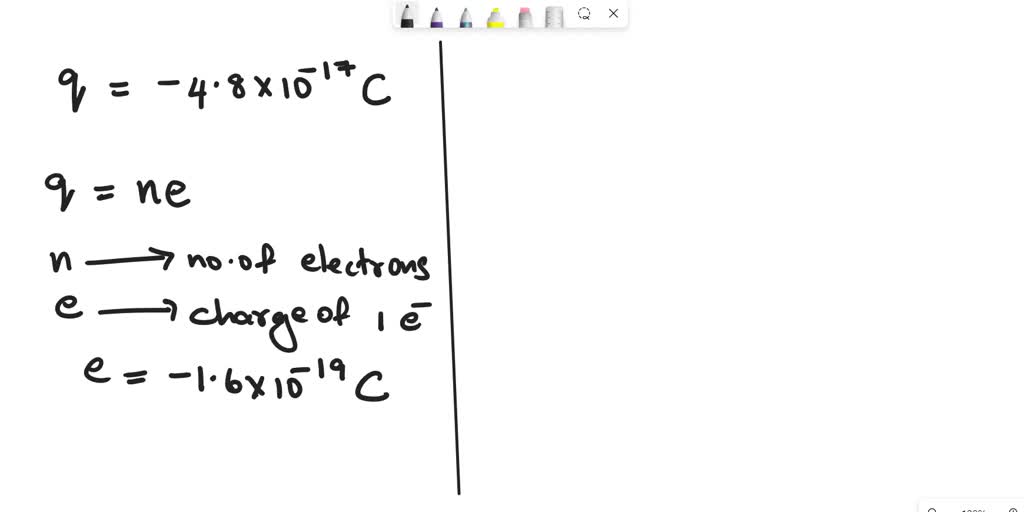 q = -4.8×10⁻¹⁷ C
q = ne
n ⟶ no. of electrons
e ⟶ charge of 1 e⁻
e = -1.6×10⁻¹⁹ C